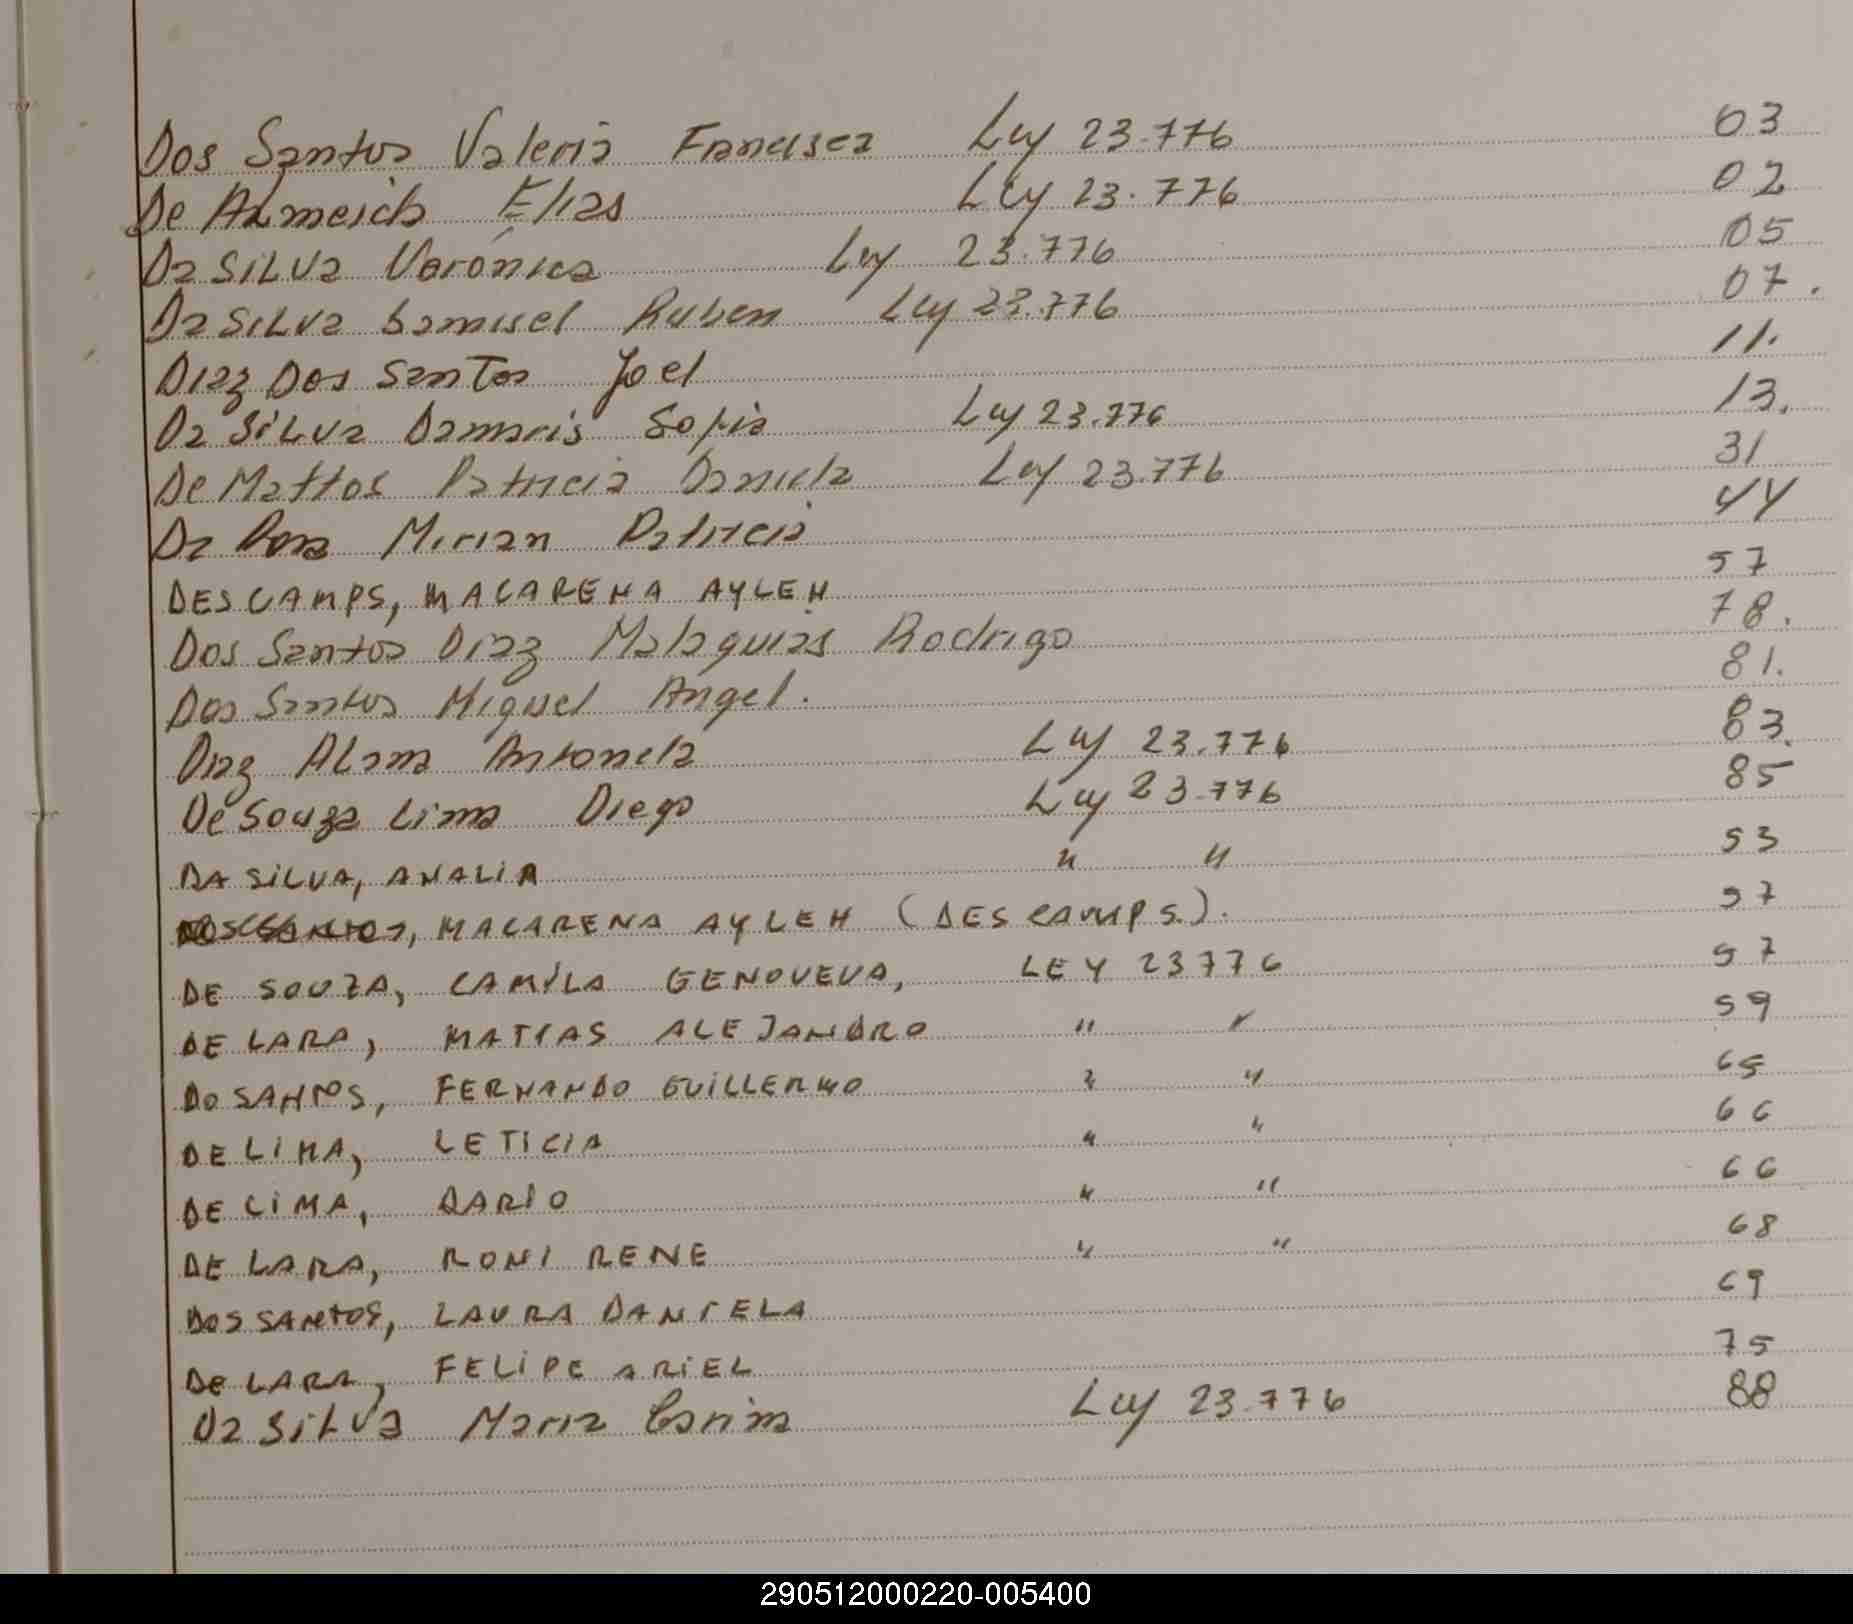 Dos Santos Valeria Francisca Ley 23.776 03
De Almeida Elias Ley 23.776 02
Da SiLVa Verónica Ley 23.776 05
Da SiLVa Samuel Ruben Ley 23.776 07.
Diaz Dos Santos Joel 11.
Da SiLVa Damaris Sofia Ley 23.776 13.
De Mattos Patricia Daniela Ley 23.776 31
Da Rosa Mirian Patricia 44
DESCAMPS, MACARENA AYLEH 57
Dos Santos Diaz Malaquias Rodrigo 78.
Dos Santos Miguel Angel. 81.
Diaz ALana Antonela Ley 23.776 83.
De Souza Lima Diego Ley 23.776 85
DA SILVA, ANALIA " " 53
DOS SANTOS, MACARENA AYLEH (DESCAMPS.). 57
DE SOUZA, CAMILA GENOVEVA, LEY 23776 57
DE LARA, MATIAS ALEJANDRO " " 59
DO SANTOS, FERNANDO GUILLERMO " " 65
DE LIMA, LETICIA " " 66
DE LIMA, DARIO " " 66
DE LARA, RONI RENE " " 68
DOS SANTOS, LAURA DANIELA 69
De LARA, FELIPE ARIEL 75
Da SiLVa Maria Carina Ley 23.776 88
290512000220-005400